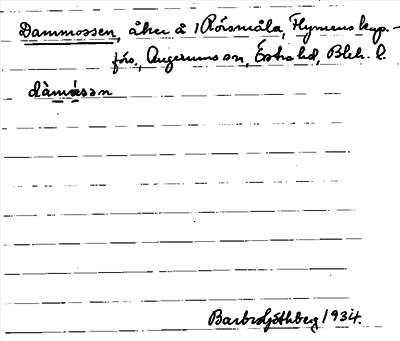 Dammossen, åker å 1 Rörsmåla, Flymens kap.-
förs., Augerums sn, Östra hd, Blek. l.
dàmmåsən
Barbro Göthberg 1934.